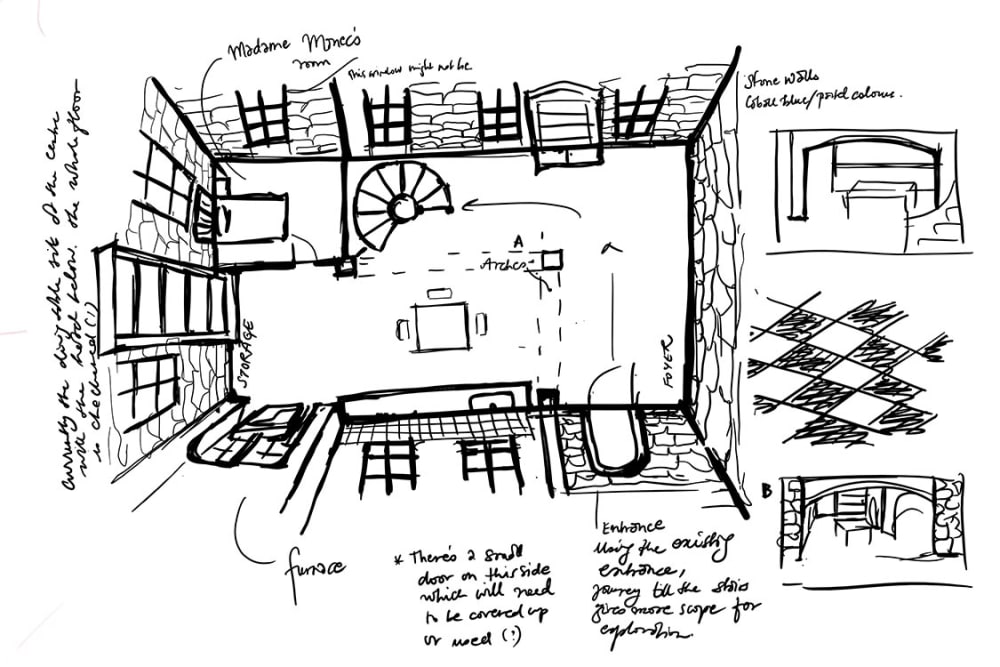 Madame Monec's
room
This window might not be
Stone walls
Cobalt blue/pastel colours.
Currently the dining table sits at the centre
with the hatch below. The whole floor
is checkered(!)
A
Arches
STORAGE
FOYER
B
furnace
* There's a small
door on this side
which will need
to be covered up
or used (?)
Entrance
Using the existing
entrance,
journey till the stairs
gives more scope for
exploration.